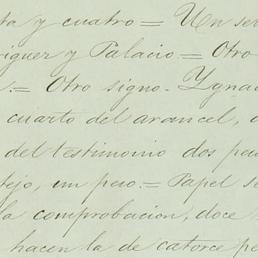 ta y cuatro = Un se
riguez y Palacio = Otro
= Otro signo - Ygna
cuarto del arancel,
del testimonio dos pes
tejo, un peso. = Papel se
la comprobacion, doce
hacen la de catorce pe